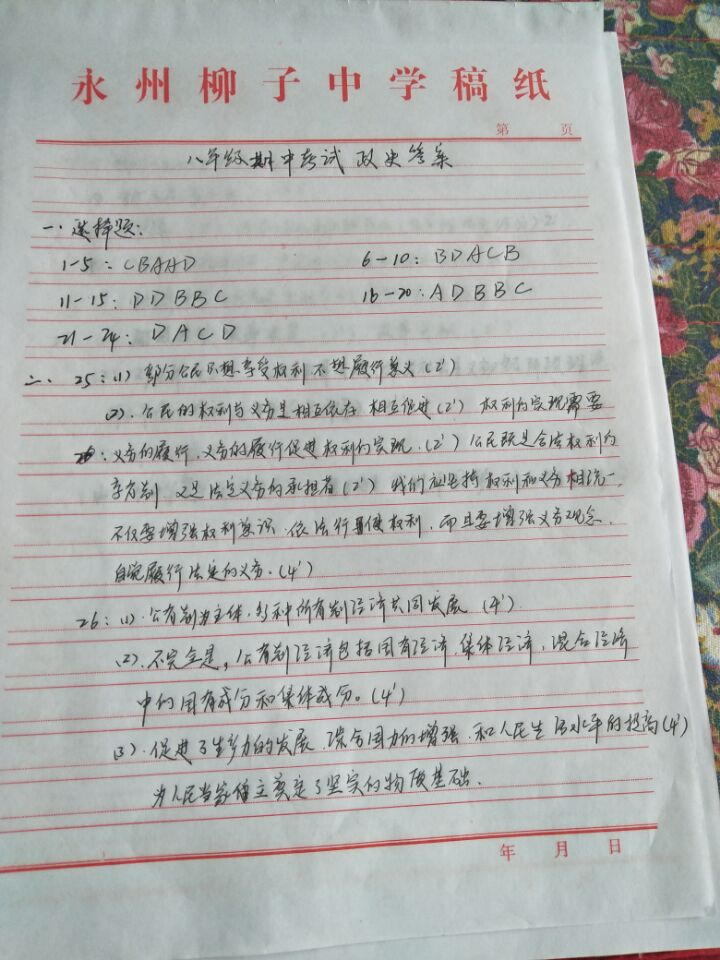 永州柳子中学稿纸
第 页
八年级期中考试政史答案
一、选择题：
1-5：CBAAD 6-10：BDACB
11-15：DDBBC 16-20：ADBBC
21-24：DACD
二、25：(1) 部分公民只想享受权利不想履行义务(2')
(2)．公民的权利与义务是相互依存 相互促进(2') 权利的实现需要
义务的履行，义务的履行促进权利的实现．(2') 公民既是合法权利的
享有者 又是法定义务的承担者(2') 我们应坚持权利和义务相统一
不仅要增强权利意识，依法行使权利，而且要增强义务观念，
自觉履行法定的义务．(4')
26：(1)．公有制为主体，多种所有制经济共同发展 (4')
(2)．不完全是，公有制经济包括国有经济，集体经济，混合经济
中的国有成分和集体成分。(4')
(3)．促进了生产力的发展，综合国力的增强，和人民生活水平的提高(4')
为人民当家做主奠定了坚实的物质基础．
年 月 日